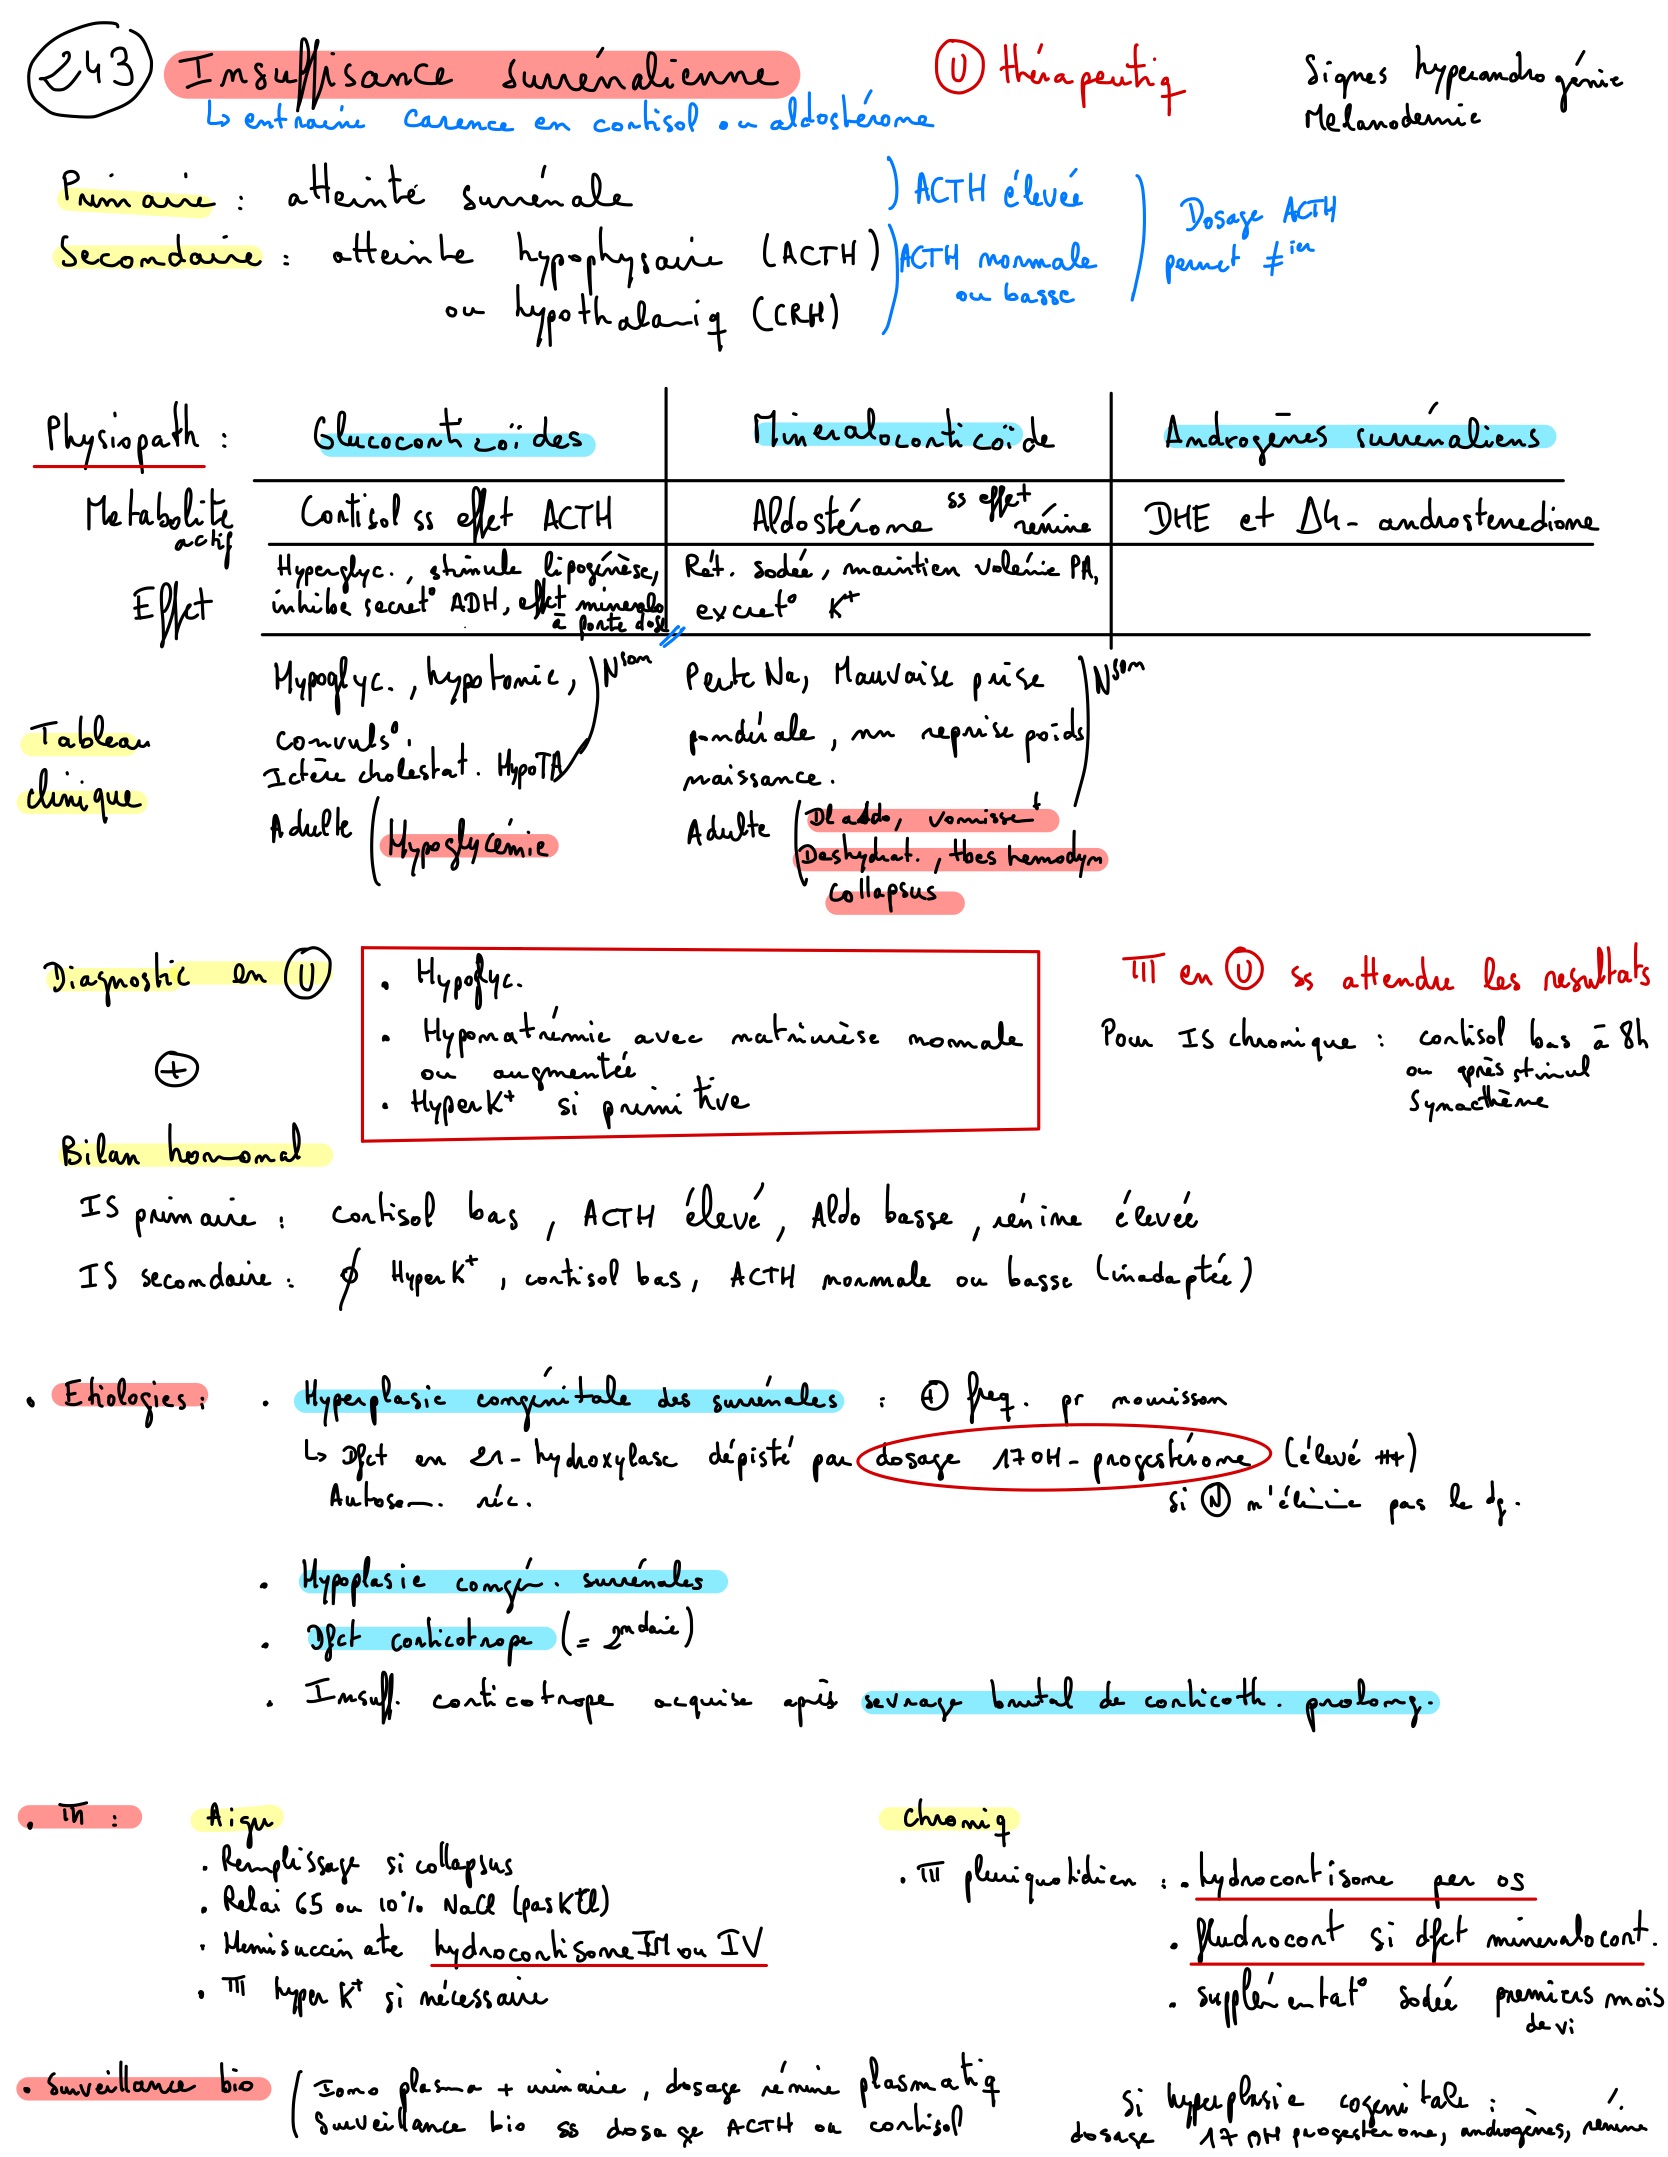 243 Insuffisance surrénalienne
Ⓤ thérapeutiq
Signes hyperandrogénie
Melanodermie
↳ entraine carence en cortisol ou aldostérone
Primaire : atteinte surrénale ) ACTH élevée
Secondaire : atteinte hypophysaire (ACTH)
ou hypothalamiq (CRH)
ACTH normale
ou basse
Dosage ACTH
permet ≠ier
Physiopath : Glucocorticoïdes Mineralocorticoïde Androgènes surrénaliens
Metabolite actif Cortisol ss effet ACTH Aldostérone ss effet rénine DHE et Δ4-androstenedione
Effet
Hyperglyc., stimule lipogénèse,
inhibe secret° ADH, effet mineralo
à forte dose
Rét. sodée, maintien volémie PA,
excret° K+
Tableau
clinique
Hypoglyc., hypotonie, ) Nson
convuls°.
Ictère cholestat. HypoTA
Adulte ( Hypoglycémie
Perte Na, Mauvaise prise ) Nson
pondérale, nn reprise poids
naissance.
Adulte ( Dl abdo, vomisset
Deshydrat., tbes hemodym
collapsus
Diagnostic en Ⓤ
⊕
Bilan hormonal
• Hypoglyc.
• Hyponatrémie avec natriurèse normale
ou augmentée
• HyperK+ si primitive
TTT en Ⓤ ss attendre les resultats
Pour IS chronique : cortisol bas à 8h
ou après stimul
Synacthène
IS primaire : cortisol bas, ACTH élevé, Aldo basse, rénine élevée
IS secondaire : ∅ HyperK+, cortisol bas, ACTH normale ou basse (inadaptée)
• Etiologies : • Hyperplasie congénitale des surrénales : ⊕ freq. pr nourisson
↳ Dfct en 21-hydroxylase dépisté par dosage 17OH-progestérone (élevé ++)
Autosom. réc.
si Ⓝ n'élimine pas le dg.
• Hypoplasie congén. surrénales
• Dfct corticotrope (= 2ndaire)
• Insuff. corticotrope acquise après sevrage brutal de corticoth. prolong.
• Th :
Aigu
• Remplissage si collapsus
• Relai G5 ou 10% NaCl (pas K+Cl)
• Hemisuccinate hydrocortisone IM ou IV
• TTT hyper K+ si nécessaire
Chroniq
• TTT pluriquotidien : • hydrocortisone per os
• fludrocort si dfct mineralocort.
• supplémentat° sodée premiers mois
de vi
• Surveillance bio ( Iono plasma + urinaire, dosage rénine plasmatiq
Surveillance bio ss dosage ACTH ou cortisol
Si hyperplasie cogenitale :
dosage 17 OH progesterone, androgènes, rénine